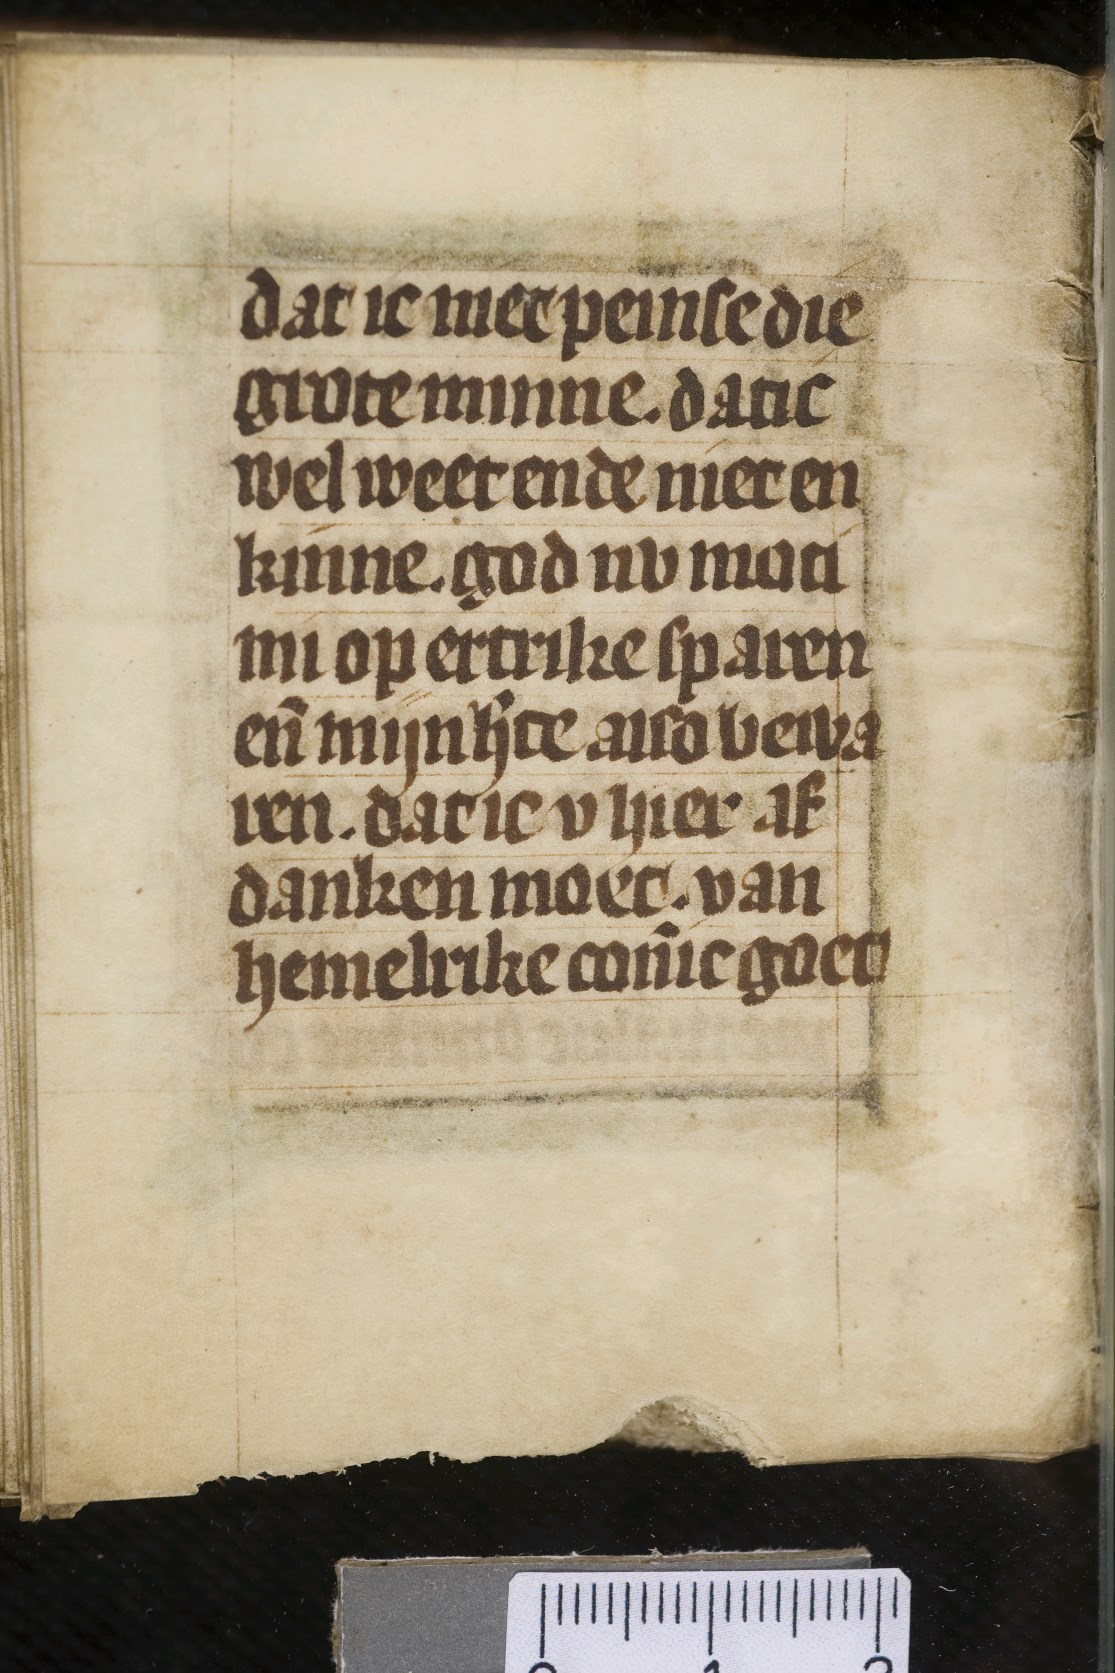 dat ic niet peinse die
grote minne. dat ic
wel weet ende niet en
kinne. god nv moet
mi op ertrike sparen
en̄ mijn h̓te also bewa
ren. dat ic v hier af
danken moet. van
hemelrike con̄ic goet
0 1 2